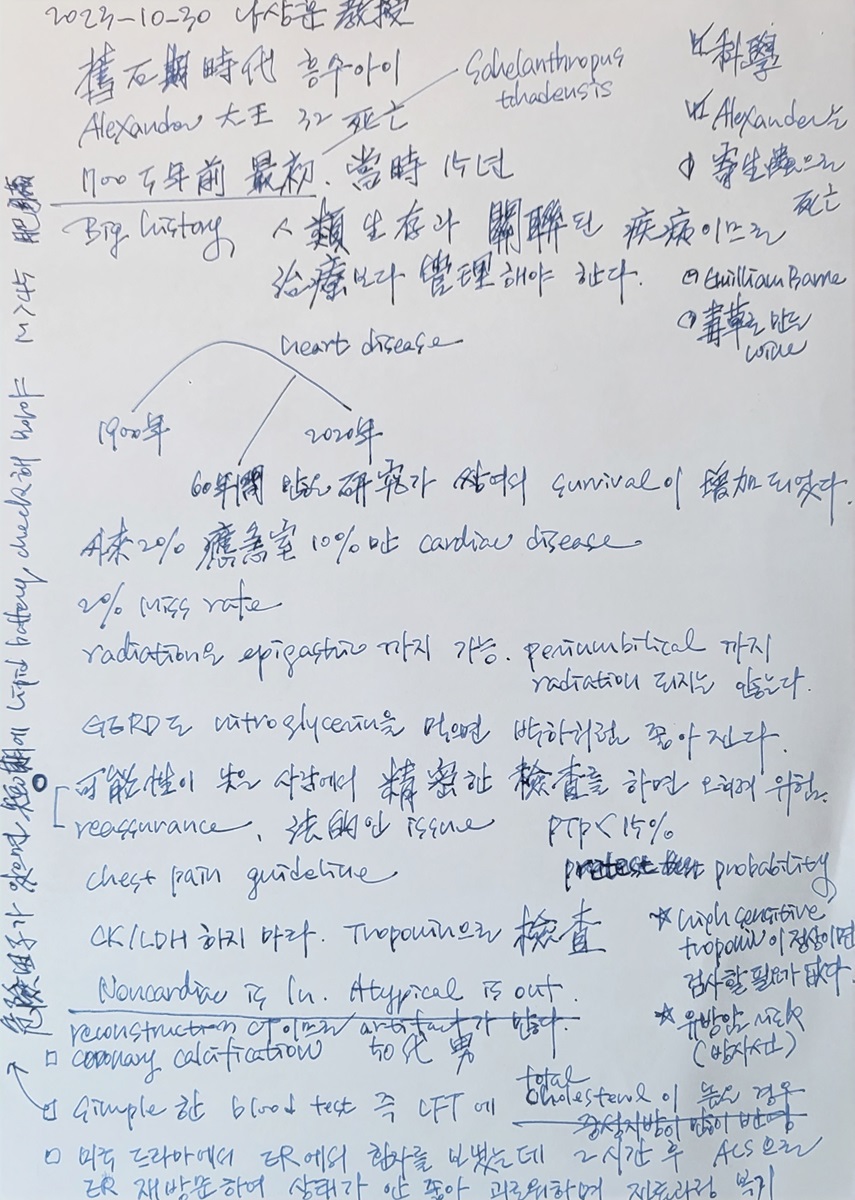 2023-10-30 나상훈 敎授
舊石期時代 흥수아이
Sahelanthropus
tchadensis
Alexander 大王 32 死亡
700万年前 最初. 當時 15년
Big history, 人類生存과 關聯된 疾病이므로
治療보다 管理해야 한다.
科學
Alexander는
寄生蟲으로
死亡
Guilliam Barre
毒草로 만든
wine
heart disease
1900年 2020年
60年間 많은 研究가 쌓여서 survival이 增加되었다.
外来 20% 應急室 10%만 cardiac disease.
2% miss rate
radiation은 epigastric 까지 가능. periumbilical 까지
radiation 되지는 않는다.
GERD도 nitroglycerin을 먹으면 박하처럼 좋아진다.
可能性이 낮은 사람에서 精密한 檢査를 하면 오히려 위험.
reassurance, 法的인 issue PTP<15%
chest pain guideline pretest probability
CK/LDH 하지 마라. Troponin으로 檢査
☆ high sensitive
troponin이 정상이면
검사할 필요가 없다.
Noncardiac is In. Atypical is out.
reconstruction CT이므로 artifact가 많다.
☆ 유방암
(방사선)
□ coronary calcification 50代 男
□ Simple한 blood test 즉 LFT에 total
cholesterol이 높은 경우
중성지방이 많이 반영
□ 미국 드라마에서 ER에서 환자를 보냈는데 2시간 후 ACS으로
ER 재방문하여 상태가 안 좋아 괴로워하며 진료과정 복기
危險因子가 있으면 短期에 lipid battery, check해 봐야 M>45 肥滿